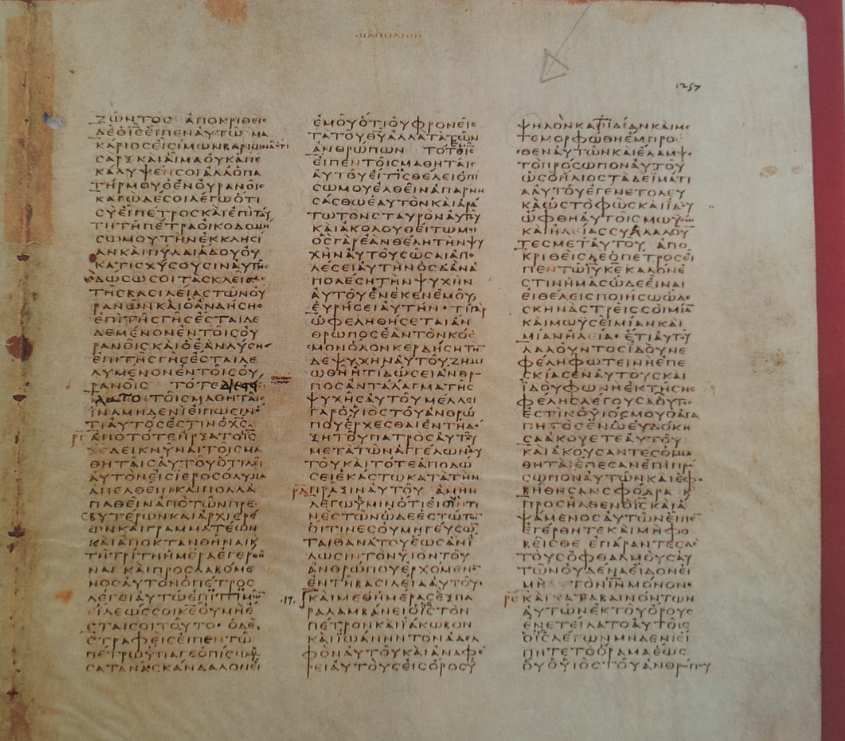 ΖΩΝΤΟϹ ΑΠΟΚΡΙΘΕΙϹ
ΔΕΟΙϹΕΙΠΕΝΑΥΤΩ ΜΑ
ΚΑΡΙΟϹΕΙϹΙΜΩΝΒΑΡΙΩΝΑΟΤΙ
ϹΑΡΞΚΑΙΑΙΜΑΟΥΚΑΠΕ
ΚΑΛΥΨΕΝϹΟΙΑΛΛΟΠΑ
ΤΗΡΜΟΥΟΕΝΟΥΡΑΝΟΙϹ
ΚΑΓΩΔΕϹΟΙΛΕΓΩΟΤΙ
ϹΥΕΙΠΕΤΡΟϹΚΑΙΕΠΙΤΑΥ
ΤΗΤΗΠΕΤΡΑΟΙΚΟΔΟΜΗ
ϹΩΜΟΥΤΗΝΕΚΚΛΗϹΙ
ΑΝΚΑΙΠΥΛΑΙΑΔΟΥΟΥ
ΚΑΤΙϹΧΥϹΟΥϹΙΝΑΥΤΗϹ
ΔΩϹΩϹΟΙΤΑϹΚΛΕΙΔΑϹ
ΤΗϹΒΑϹΙΛΕΙΑϹΤΩΝΟΥ
ΡΑΝΩΝΚΑΙΟΑΝΔΗϹΗϹ
ΕΠΙΤΗϹΓΗϹΕϹΤΑΙΔΕ
ΔΕΜΕΝΟΝΕΝΤΟΙϹΟΥ
ΡΑΝΟΙϹΚΑΙΟΕΑΝΛΥϹΗϹ
ΕΠΙΤΗϹΓΗϹΕϹΤΑΙΛΕ
ΛΥΜΕΝΟΝΕΝΤΟΙϹΟΥ
ΡΑΝΟΙϹ ΤΟΤΕ
ΤΟΙϹΜΑΘΗΤΑΙϹ
ΙΝΑΜΗΔΕΝΙΕΙΠΩϹΙΝΟ
ΤΙΑΥΤΟϹΕϹΤΙΝΟΧϹ
ΑΠΟΤΟΤΕΗΡΞΑΤΟΙϹ
ΧϹΔΕΙΚΝΥΝΑΙΤΟΙϹΜΑ
ΘΗΤΑΙϹΑΥΤΟΥΟΤΙΔΕΙ
ΑΥΤΟΝΕΙϹΙΕΡΟϹΟΛΥΜΑ
ΑΠΕΛΘΕΙΝΚΑΙΠΟΛΛΑ
ΠΑΘΕΙΝΑΠΟΤΩΝΠΡΕ
ϹΒΥΤΕΡΩΝΚΑΙΑΡΧΙΕΡΕ
ΩΝΚΑΙΓΡΑΜΜΑΤΕΩΝ
ΚΑΙΑΠΟΚΤΑΝΘΗΝΑΙΚ
ΤΗΤΡΙΤΗΗΜΕΡΑΕΓΕΡΘΗ
ΝΑΙ ΚΑΙΠΡΟϹΛΑΒΟΜΕ
ΝΟϹΑΥΤΟΝΟΠΕΤΡΟϹ
ΛΕΓΕΙΑΥΤΩΕΠΙΤΙΜΩΝ
ΕΙΛΕΩϹϹΟΙΚΕΟΥΜΗΕ
ϹΤΑΙϹΟΙΤΟΥΤΟ ΟΔΕ
ϹΤΡΑΦΕΙϹΕΙΠΕΝΤΩ
ΠΕΤΡΩΥΠΑΓΕΟΠΙϹΩΜΟΥ
ϹΑΤΑΝΑϹΚΑΝΔΑΛΟΝΕΙ
ΕΜΟΥΟΤΙΟΥΦΡΟΝΕΙϹ
ΤΑΤΟΥΘΥΑΛΛΑΤΑΤΩΝ
ΑΝΘΡΩΠΩΝ ΤΟΤΕΙϹ
ΕΙΠΕΝΤΟΙϹΜΑΘΗΤΑΙϹ
ΑΥΤΟΥΕΙΤΙϹΘΕΛΕΙΟΠΙ
ϹΩΜΟΥΕΛΘΕΙΝΑΠΑΡΝΗ
ϹΑϹΘΩΕΑΥΤΟΝΚΑΙΑΡΑ
ΤΩΤΟΝϹΤΑΥΡΟΝΑΥΤΟΥ
ΚΑΙΑΚΟΛΟΥΘΕΙΤΩΜΟΙ
ΟϹΓΑΡΕΑΝΘΕΛΗΤΗΝΨΥ
ΧΗΝΑΥΤΟΥϹΩϹΑΙΑΠΟ
ΛΕϹΕΙΑΥΤΗΝΟϹΔΑΝΑ
ΠΟΛΕϹΗΤΗΝΨΥΧΗΝ
ΑΥΤΟΥΕΝΕΚΕΝΕΜΟΥ
ΕΥΡΗϹΕΙΑΥΤΗΝ ΤΙΓΑΡ
ΩΦΕΛΗΘΗϹΕΤΑΙΑΝ
ΘΡΩΠΟϹΕΑΝΤΟΝΚΟϹ
ΜΟΝΟΛΟΝΚΕΡΔΗϹΗΤΗΝ
ΔΕΨΥΧΗΝΑΥΤΟΥΖΗΜΙ
ΩΘΗΗΤΙΔΩϹΕΙΑΝΘΡΩ
ΠΟϹΑΝΤΑΛΛΑΓΜΑΤΗϹ
ΨΥΧΗϹΑΥΤΟΥΜΕΛΛΕΙ
ΓΑΡΟΥΙΟϹΤΟΥΑΝΘΡΩ
ΠΟΥΕΡΧΕϹΘΑΙΕΝΤΗΔΟ
ΞΗΤΟΥΠΑΤΡΟϹΑΥΤΟΥ
ΜΕΤΑΤΩΝΑΓΓΕΛΩΝΑΥ
ΤΟΥΚΑΙΤΟΤΕΑΠΟΔΩ
ϹΕΙΕΚΑϹΤΩΚΑΤΑΤΗΝ
ΠΡΑΞΙΝΑΥΤΟΥ ΑΜΗΝ
ΛΕΓΩΥΜΙΝΟΤΙΕΙϹΙΝΤΙ
ΝΕϹΤΩΝΩΔΕΕϹΤΩΤΩΝ
ΟΙΤΙΝΕϹΟΥΜΗΓΕΥϹΩΝ
ΤΑΙΘΑΝΑΤΟΥΕΩϹΑΝΙ
ΔΩϹΙΝΤΟΝΥΙΟΝΤΟΥ
ΑΝΘΡΩΠΟΥΕΡΧΟΜΕΝΟΝ
ΕΝΤΗΒΑϹΙΛΕΙΑΑΥΤΟΥ
17. ΚΑΙΜΕΘΗΜΕΡΑϹΕΞΠΑ
ΡΑΛΑΜΒΑΝΕΙΟΙϹΤΟΝ
ΠΕΤΡΟΝΚΑΙΙΑΚΩΒΟΝ
ΚΑΙΙΩΑΝΗΝΤΟΝΑΔΕΛ
ΦΟΝΑΥΤΟΥΚΑΙΑΝΑΦΕ
ΡΕΙΑΥΤΟΥϹΕΙϹΟΡΟϹΥ
1257
ΨΗΛΟΝΚΑΤΙΔΙΑΝΚΑΙΜΕ
ΤΕΜΟΡΦΩΘΗΕΜΠΡΟ
ϹΘΕΝΑΥΤΩΝΚΑΙΕΛΑΜΨΕ
ΤΟΠΡΟϹΩΠΟΝΑΥΤΟΥ
ΩϹΟΗΛΙΟϹΤΑΔΕΙΜΑΤΙ
ΑΑΥΤΟΥΕΓΕΝΕΤΟΛΕΥ
ΚΑΩϹΤΟΦΩϹΚΑΙΙΔΟΥ
ΩΦΘΗΑΥΤΟΙϹΜΩΥϹΗϹ
ΚΑΙΗΛΕΙΑϹϹΥΛΛΑΛΟΥ
ΤΕϹΜΕΤΑΥΤΟΥ ΑΠΟ
ΚΡΙΘΕΙϹΔΕΟΠΕΤΡΟϹΕΙ
ΠΕΝΤΩΙΥΚΕΚΑΛΟΝΕ
ϹΤΙΝΗΜΑϹΩΔΕΕΙΝΑΙ
ΕΙΘΕΛΕΙϹΠΟΙΗϹΩΩΔΕ
ϹΚΗΝΑϹΤΡΕΙϹϹΟΙΜΙΑ
ΚΑΙΜΩΥϹΕΙΜΙΑΝΚΑΙ
ΜΙΑΝΗΛΕΙΑ ΕΤΙΑΥΤΟΥ
ΛΑΛΟΥΝΤΟϹΙΔΟΥΝΕ
ΦΕΛΗΦΩΤΕΙΝΗΕΠΕ
ϹΚΙΑϹΕΝΑΥΤΟΥϹΚΑΙ
ΙΔΟΥΦΩΝΗΕΚΤΗϹΝΕ
ΦΕΛΗϹΛΕΓΟΥϹΑΟΥΤΟϹ
ΕϹΤΙΝΟΥΙΟϹΜΟΥΟΑΓΑ
ΠΗΤΟϹΕΝΩΕΥΔΟΚΗ
ϹΑΑΚΟΥΕΤΕΑΥΤΟΥ
ΚΑΙΑΚΟΥϹΑΝΤΕϹΟΙΜΑ
ΘΗΤΑΙΕΠΕϹΑΝΕΠΙΠΡ
ϹΩΠΟΝΑΥΤΩΝΚΑΙΕΦΟ
ΒΗΘΗϹΑΝϹΦΟΔΡΑ Κ
ΠΡΟϹΗΛΘΕΝΟΙϹΚΑΙΑ
ΨΑΜΕΝΟϹΑΥΤΩΝΕΙΠΕ
ΕΓΕΡΘΗΤΕΚΑΙΜΗΦΟ
ΒΕΙϹΘΕ ΕΠΑΡΑΝΤΕϹΔΕ
ΤΟΥϹΟΦΘΑΛΜΟΥϹΑΥ
ΤΩΝΟΥΔΕΝΑΕΙΔΟΝΕΙ
ΜΗ ΤΟΝΙΝΜΟΝΟΝ
ΚΑΙΚΑΤΑΒΑΙΝΟΝΤΩΝ
ΑΥΤΩΝΕΚΤΟΥΟΡΟΥϹ
ΕΝΕΤΕΙΛΑΤΟΑΥΤΟΙϹ
ΟΙϹΛΕΓΩΝΜΗΔΕΝΙΕΙ
ΠΗΤΕΤΟΟΡΑΜΑΕΩϹ
ΟΥΟΥΙΟϹΤΟΥΑΝΘΡΩΠΟΥ